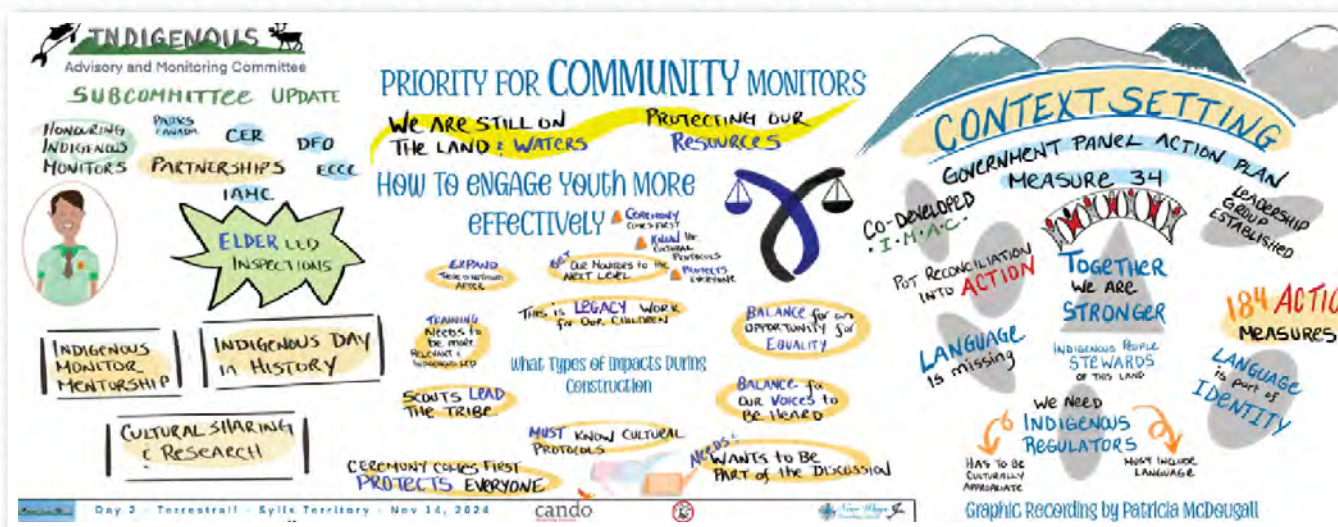 INDIGENOUS
Advisory and Monitoring Committee
SUBCOMMITTEE UPDATE
HONOURING
INDIGENOUS
MONITORS
PARKS
CANADA
CER
DFO
PARTNERSHIPS
ECCC
IAMC
ELDER LED
INSPECTIONS
INDIGENOUS
MONITOR
MENTORSHIP
INDIGENOUS DAY
in HISTORY
CULTURAL SHARING
& RESEARCH
PRIORITY FOR COMMUNITY MONITORS
WE ARE STILL ON
THE LAND & WATERS
PROTECTING OUR
RESOURCES
HOW TO ENGAGE YOUTH MORE
EFFECTIVELY
CEREMONY
COMES FIRST
KNOW the
CULTURAL
PROTOCOLS
PROTECTS
EVERYONE
EXPAND
AFTER
GET
OUR MONITORS to the
NEXT LEVEL
THIS is LEGACY WORK
for OUR CHILDREN
TRAINING
Needs to
be more
RELEVANT &
INDIGENOUS LED
BALANCE for an
OPPORTUNITY for
EQUALITY
What Types of Impacts During
Construction
SCOUTS LEAD
THE TRIBE
BALANCE for
OUR VOICES to
BE HEARD
MUST KNOW CULTURAL
PROTOCOLS
NEEDS &
WANTS to BE
PART of the DISCUSSION
CEREMONY COMES FIRST
PROTECTS EVERYONE
CONTEXT SETTING
GOVERNMENT PANEL ACTION PLAN
MEASURE 34
CO-DEVELOPED
I.M.A.C.
LEADERSHIP
GROUP
ESTABLISHED
PUT RECONCILIATION
INTO ACTION
TOGETHER
WE ARE
STRONGER
184 ACTIO
MEASURES
LANGUAGE
is missing
INDIGENOUS PEOPLE
STEWARDS
OF THIS LAND
LANGUAGE
is part of
IDENTITY
WE NEED
INDIGENOUS
REGULATORS
HAS TO BE
CULTURALLY
APPROPRIATE
MUST INCLUDE
LANGUAGE
Day 2 - Terrestrail - Syilx Territory - Nov 14, 2024
cando
Graphic Recording by Patricia McDougall